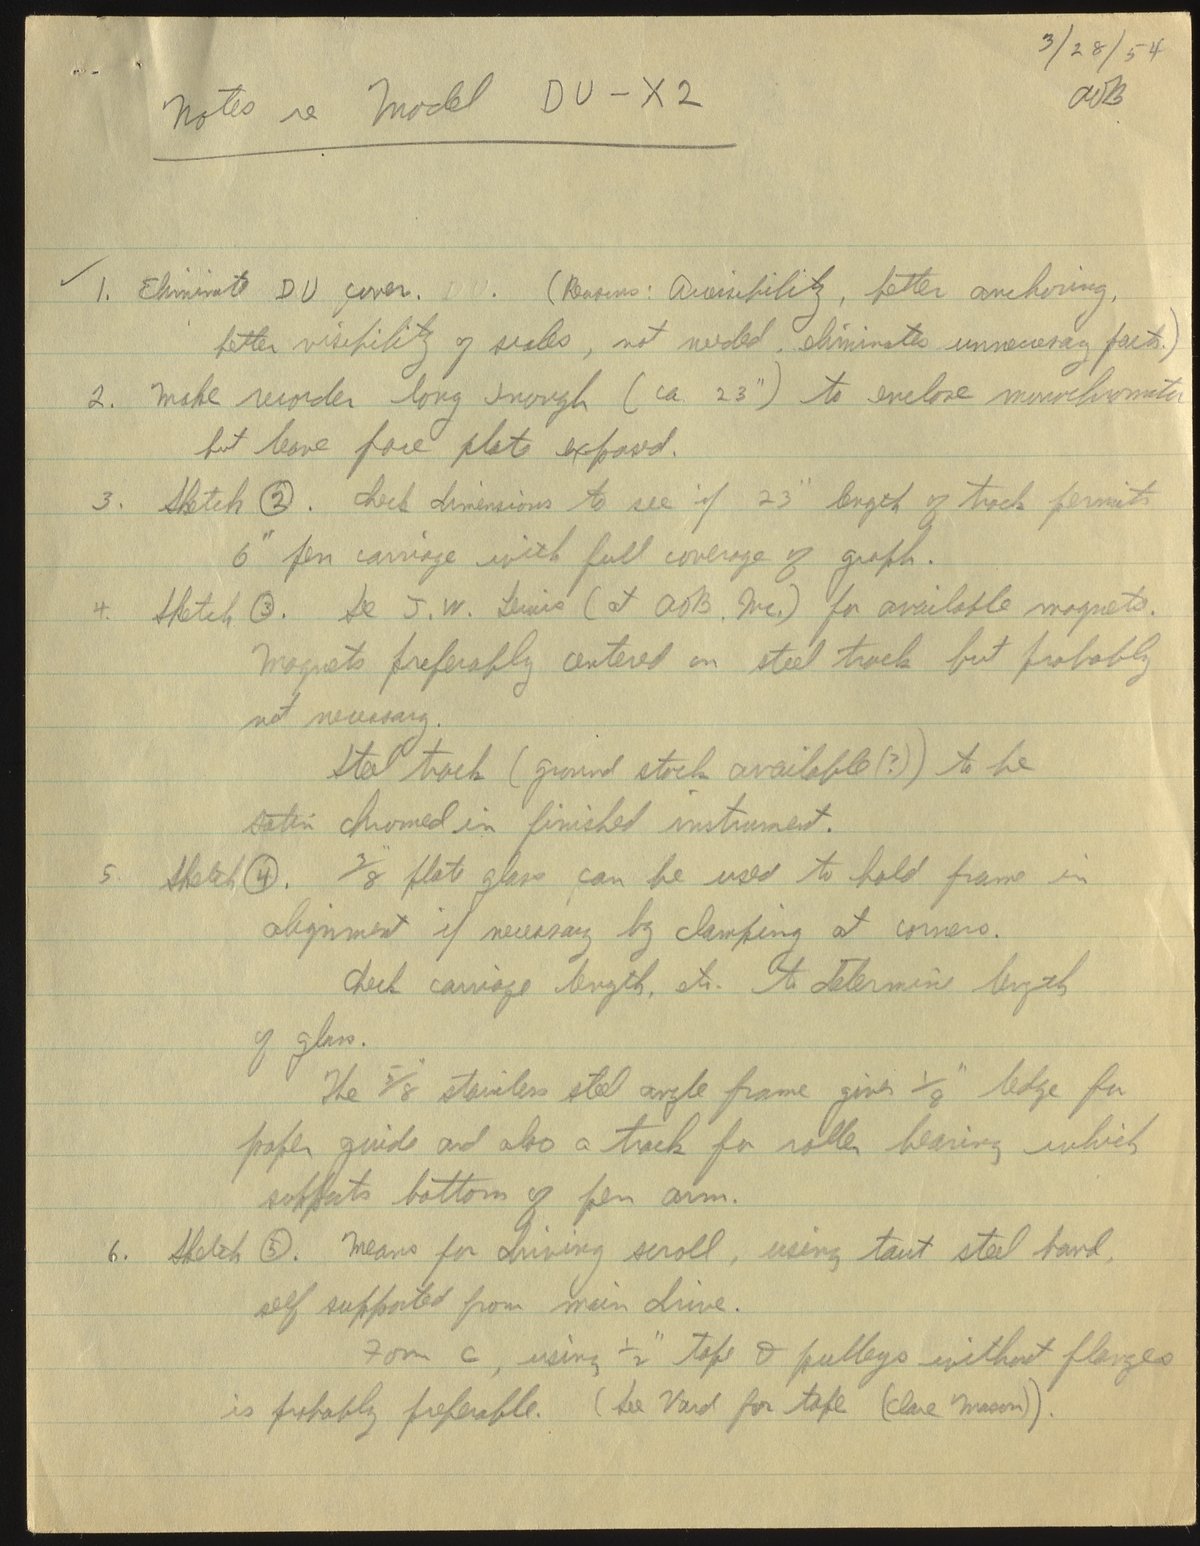 3/28/54
Notes re Model DU-X2
AOB
✓ 1. Eliminate DU cover. (Reasons: Accessibility, better anchoring,
better visibility of scales, not needed, eliminates unnecessary parts.)
2. Make recorder long enough (ca. 23") to enclose monochromator
but leave face plate exposed.
3. Sketch ②. Check dimensions to see if 23" length of track permits
6" pen carriage with full coverage of graph.
4. Sketch ③. See J. W. Lewis (at AOB, Inc.) for available magnets.
Magnets preferably centered on steel track but probably
not necessary.
Steel track (ground stock available(?)) to be
satin chromed in finished instrument.
5. Sketch ④. 3/8" plate glass can be used to hold frame in
alignment if necessary by clamping at corners.
Check carriage length, etc. to determine length
of glass.
The 5/8" stainless steel angle frame gives 1/8" ledge for
paper guide and also a track for roller bearing which
supports bottom of pen arm.
6. Sketch ⑤. Means for driving scroll, using taut steel band,
self supported from main drive.
Form C, using 1/2" tape & pulleys without flanges
is probably preferable. (See Vard for tape (Clare Mason)).